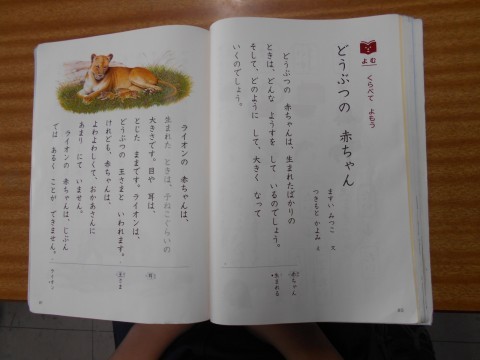 よむ
くらべて よもう
どうぶつの 赤ちゃん
ますい みつこ 文
どうぶつの 赤ちゃんは、生まれたばかりの
ときは、どんな ようすを して いるのでしょう。
そして、どのように して、大きく なって
いくのでしょう。
赤ちゃん
生まれる
ライオンの 赤ちゃんは、
生まれた ときは、子ねこぐらいの
大きさです。目や 耳は、
とじた ままです。ライオンは、
どうぶつの 王さまと いわれます。
けれども、赤ちゃんは、
よわよわしくて、おかあさんに
あまり にて いません。
ライオンの 赤ちゃんは、じぶん
では あるく ことが できません。
耳
王さま